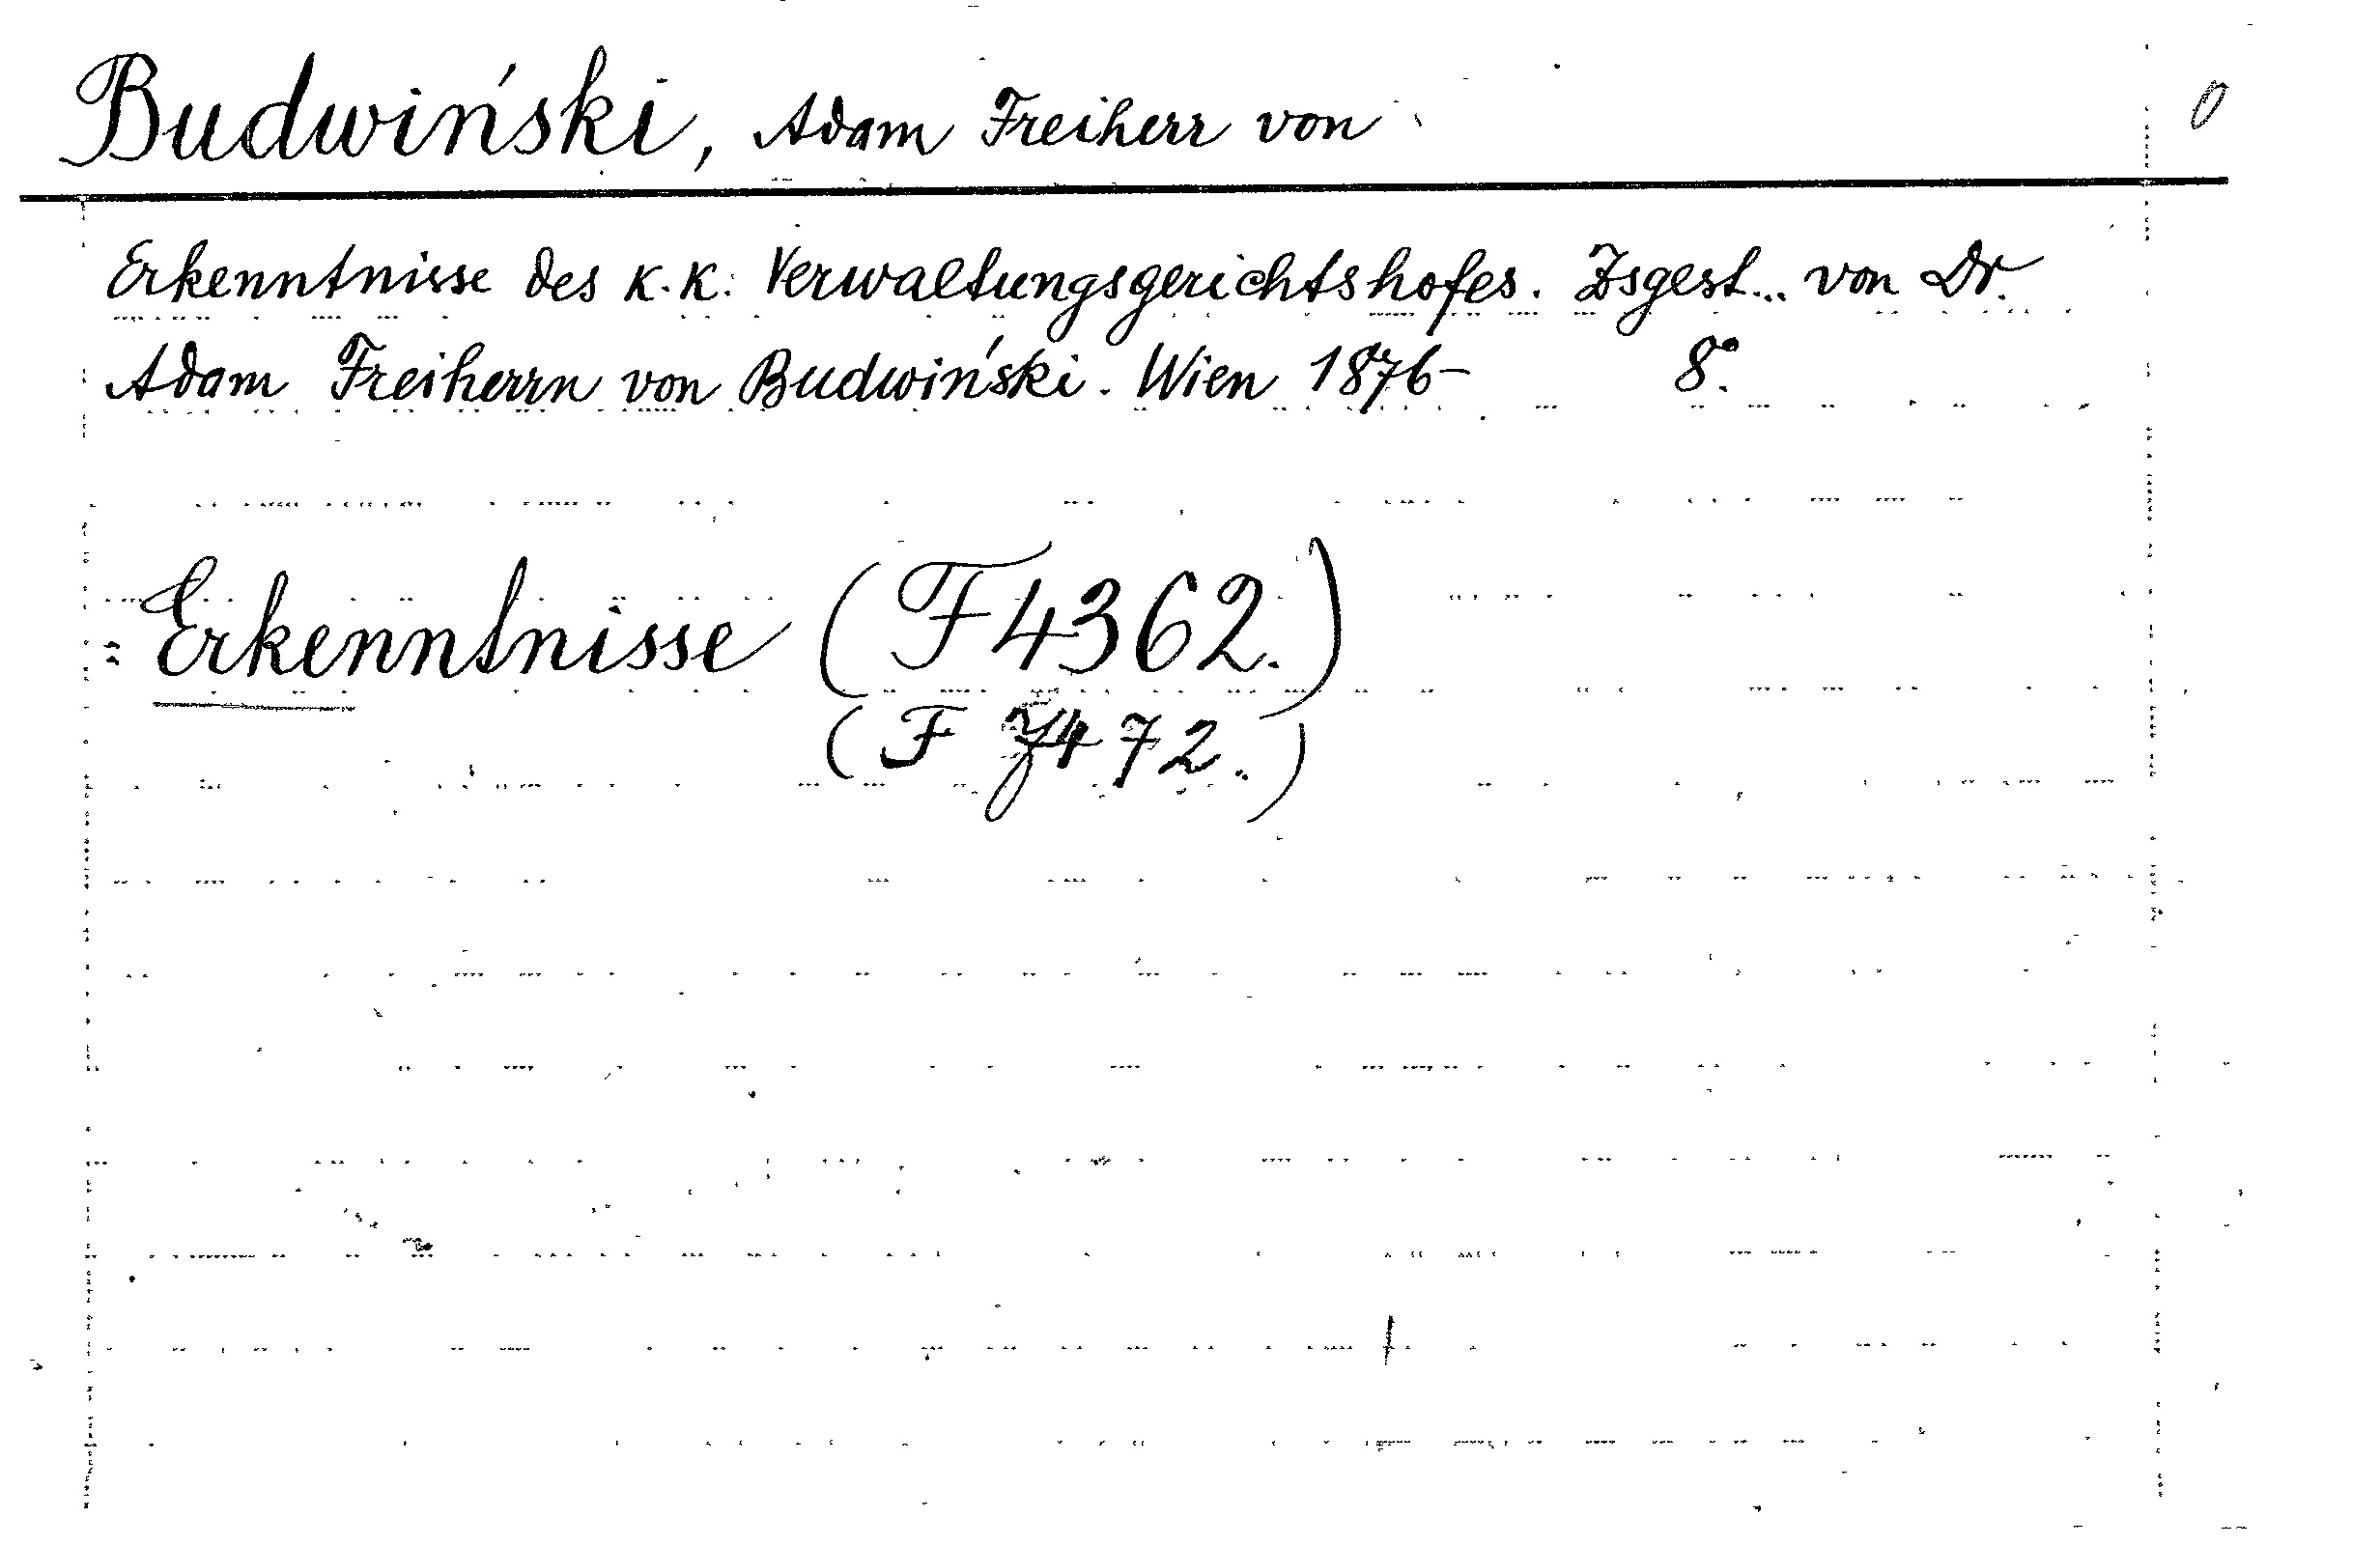 Budwiński, Adam Freiherr von
0
Erkenntnisse des K. K. Verwaltungsgerichtshofes. Zsgest... von Dr.
Adam Freiherrn von Budwiński. Wien 1876- 8°.
= Erkenntnisse (F 4362.)
(F 7472.)